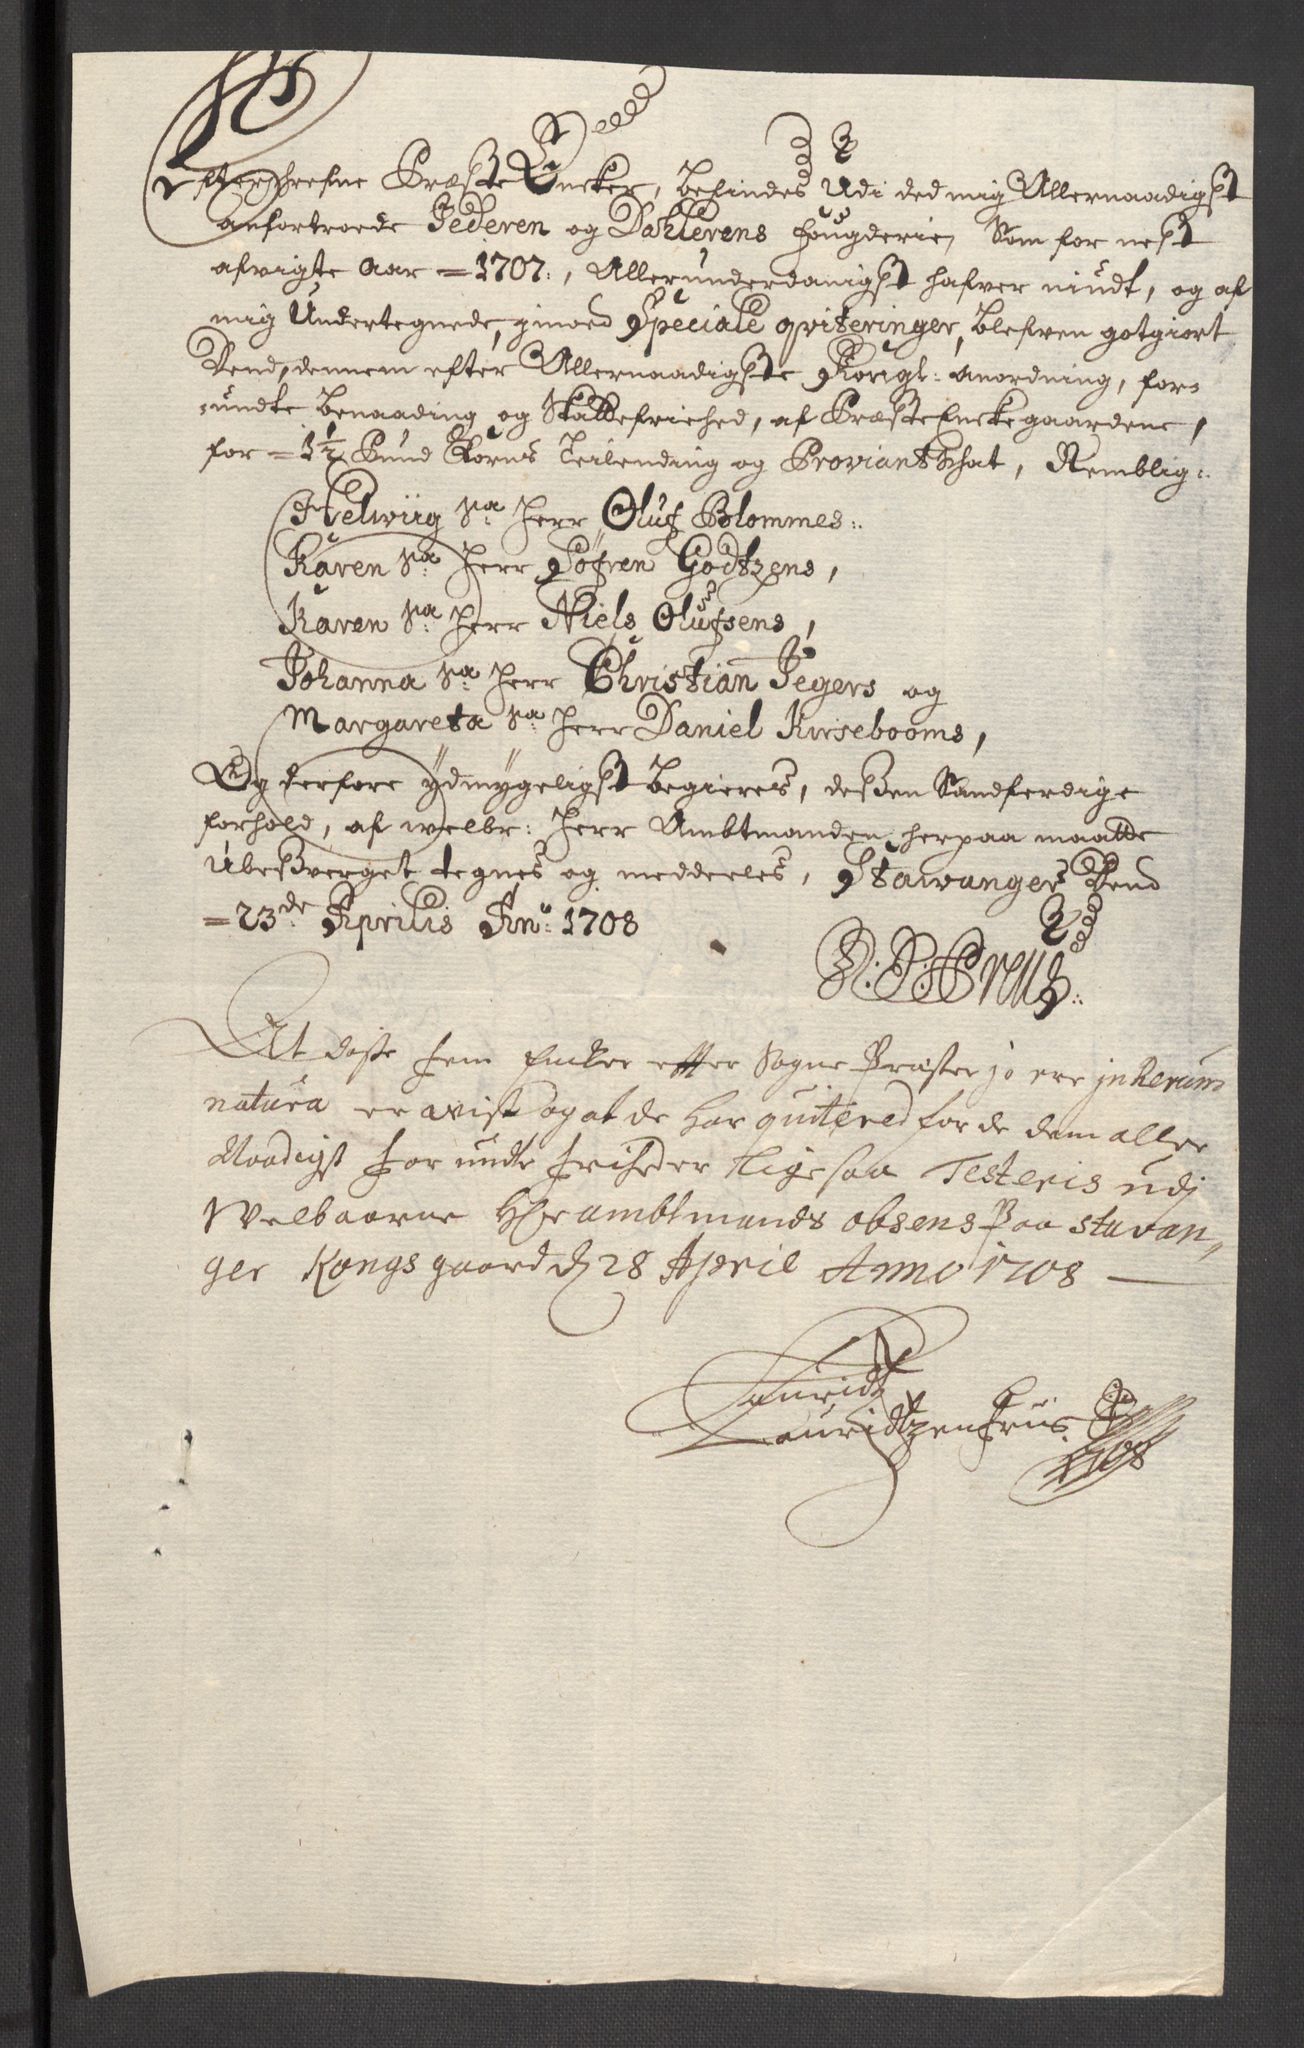 Efterschrefne Præste Encker, befindes udi ded mig Allernaadigst
anfortroede Jederen og Dahlerens fougderie, Som for nest
afvigte Aar = 1707:, Allerunderdanigst hafver niudt, og af
mig Undertegnede, gimod Speciale qviteringer, blefven gotgiort
dend, dennem efter Allernaadigste Kongl: Anordning, for-
undte benaading og Skattefriehed, af Præste Enckegaardene,
for = 1½ Pund Korns Leilending og Proviant Schat, Nemblig:
Helwiig Sa: Herr Oluf Blommes:
Karen Sa: Herr Söfren Godtzens,
Karen Sa: Herr Niels Olufsens,
Johanna Sa: Herr Christian Jegers og
Margareta Sa: Herr Daniel Kirsebooms,
Og derfore ydmygeligst begieres, desßen Sandferdige
forhold, af welbr: Herr Ambtmanden, herpaa maatte
ubesverget tegnes og meddeeles, Stawanger dend
= 23de Aprilis Ano: 1708
At disse fem Encker efter Sogne Præster jo ere in Rerum
natura er wist og at de har quitered for de dem aller
Naadigst forundte friheder lige saa Testeris udj
Welbaarne Hr ambtmands absens Paa Stavan,,
ger Kongsgaard d 28 April Anno 1708
Lauridz
Lauridtzen Friis
1708